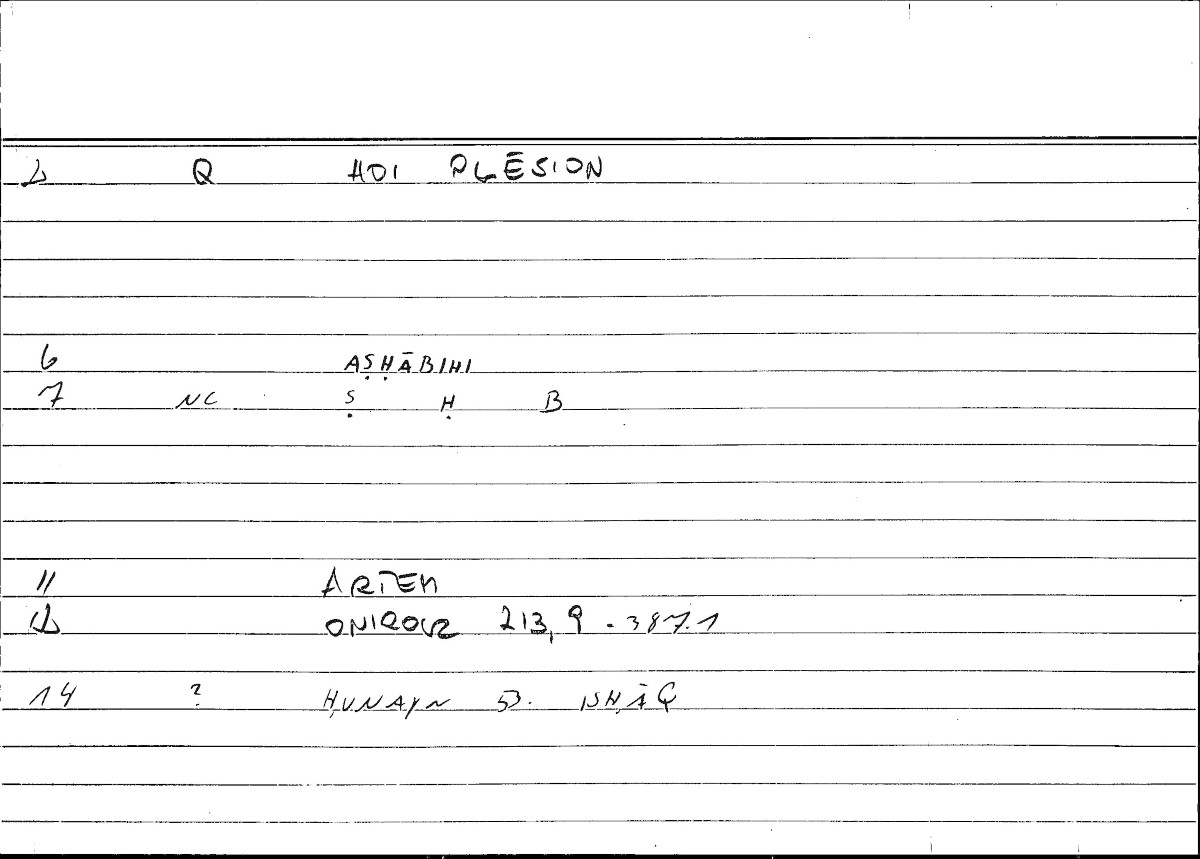 1 Q HOI PLĒSION
6 AṢḤĀBIHI
7 NC Ṣ Ḥ B
11 ARTEM
12 ONIROCR 213,9 - 387.1
14 ? ḤUNAYN B. ISḤĀQ